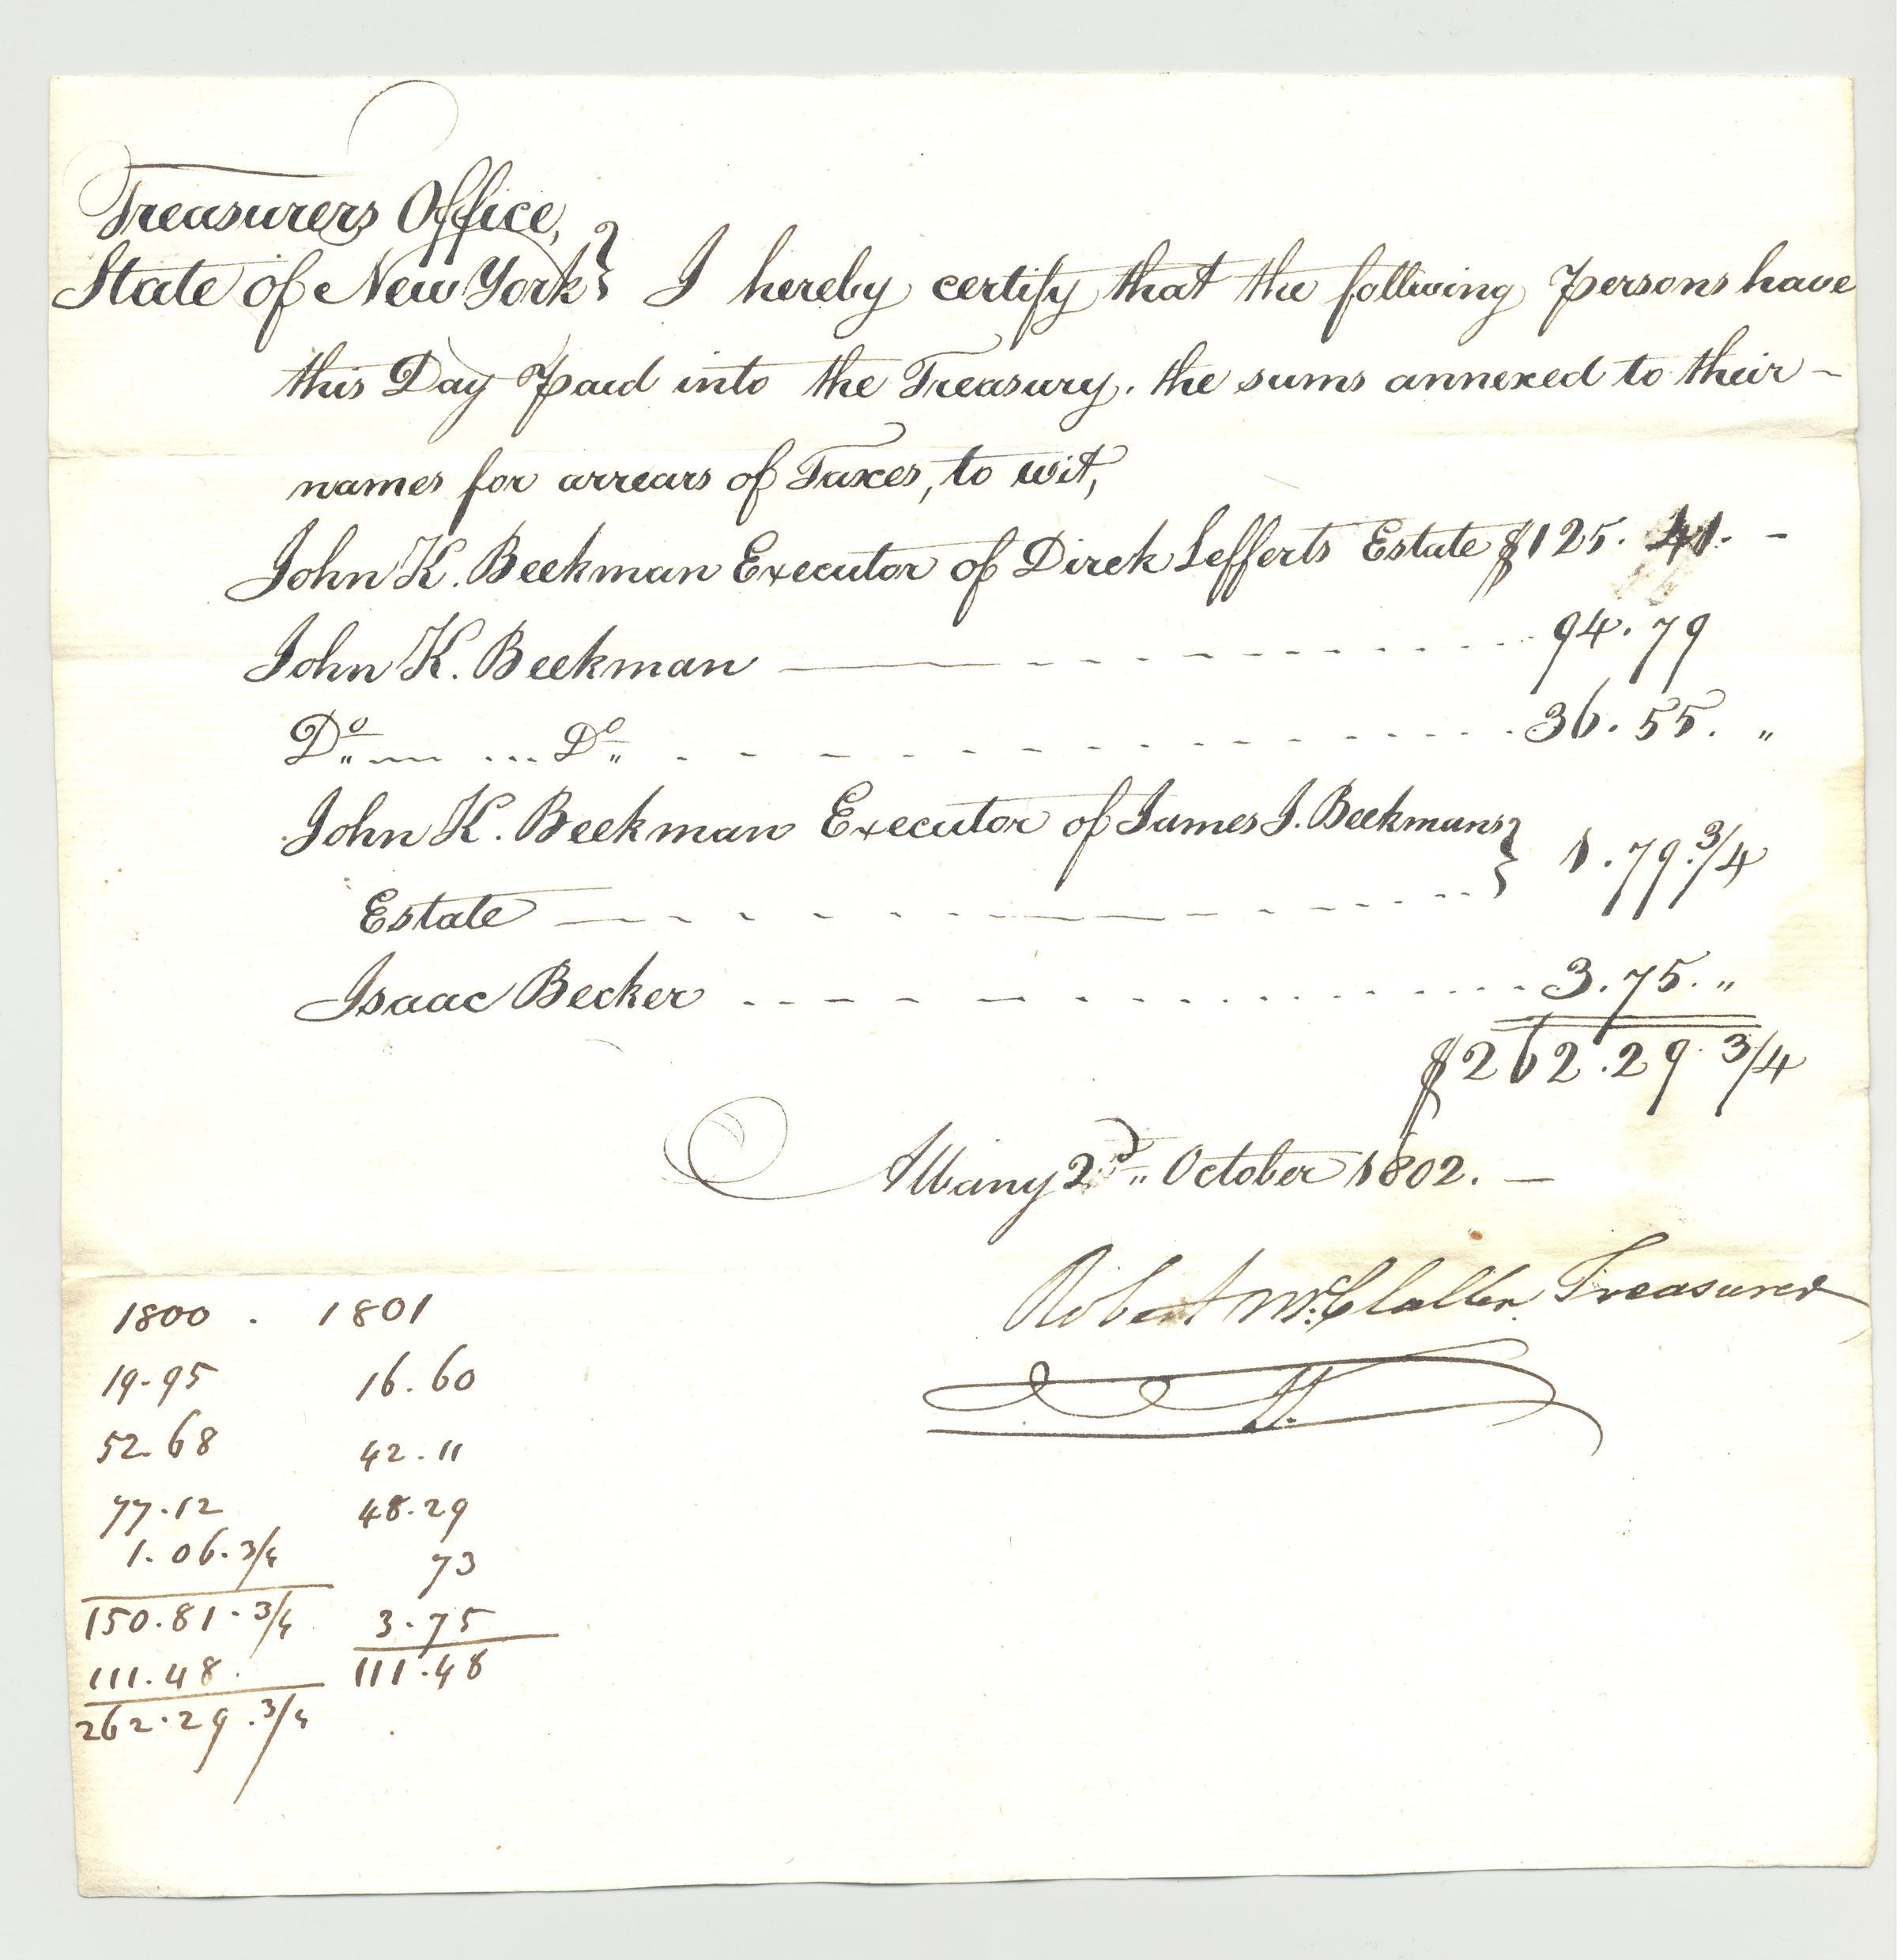 Treasurers Office,
State of New York} I hereby certify that the following Persons have
this Day Paid into the Treasury. the sums annexed to their –
names for arrears of Taxes, to wit,
John K. Beekman Executor of Direk Lefferts Estate $125. 41. –
John K. Beekman 94.79
Do Do 36.55. "
John K. Beekman Executor of James J. Beekmans} 1.79.3/4
Estate
Isaac Becker 3.75. "
$262.29 3/4
Albany 2d October 1802. –
Robert McClallen Treasurer
1800 . 1801
19.95 16.60
52.68 42.11
77.12 48.29
1.06.3/4 73
150.81.3/4 3.75
111.48. 111.48
262.29.3/4